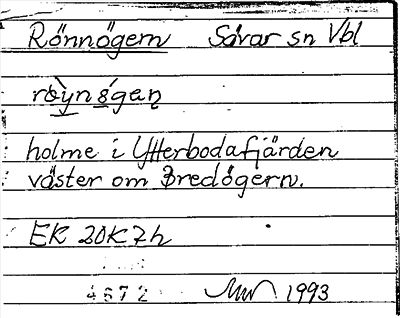 Rönnögern Sävar sn Vbl
holme i Ytterbodafjärden
väster om Bredögern.
EK 20K7h
4672 1993